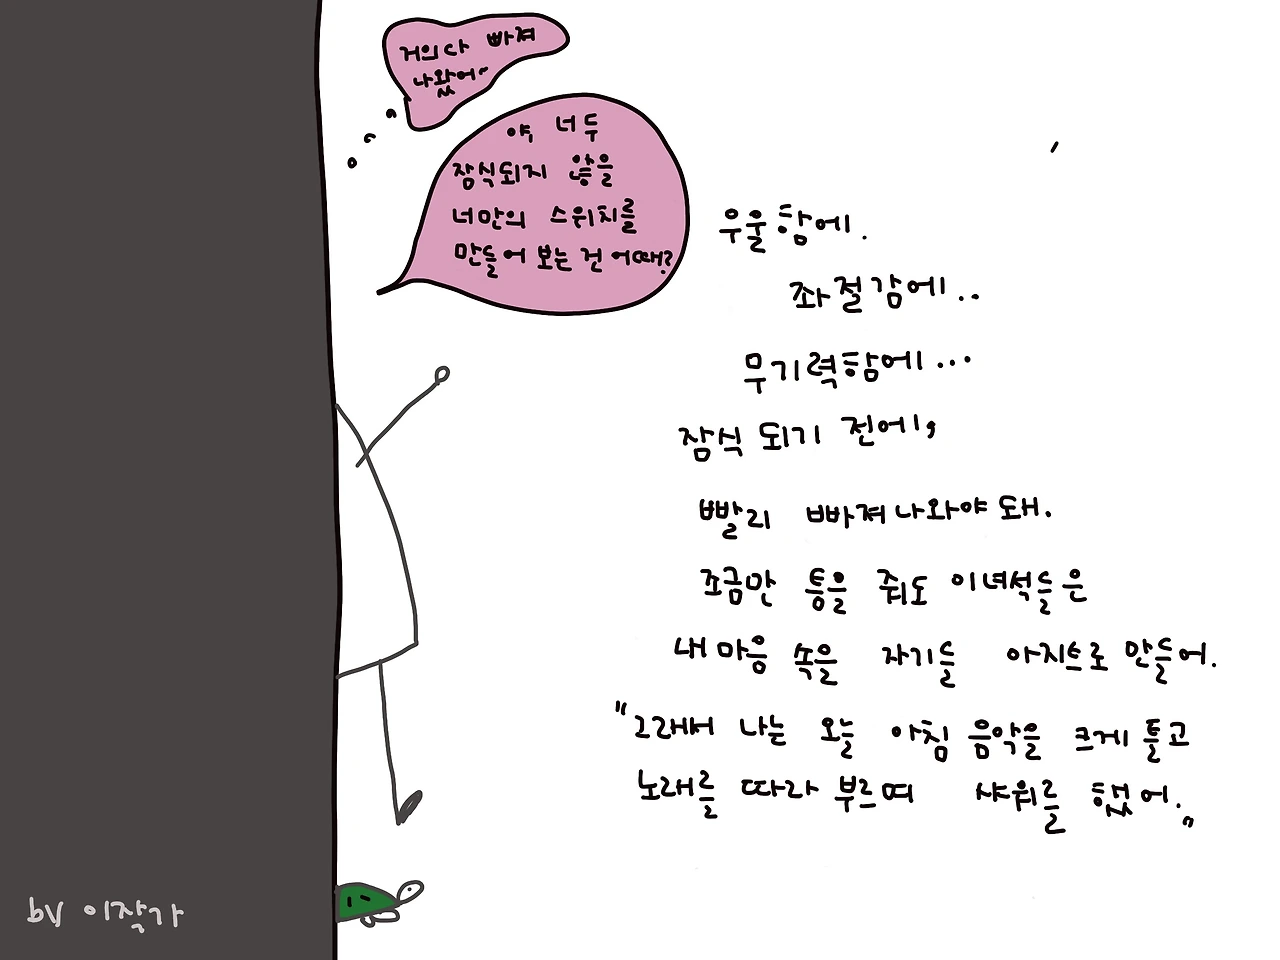 거의다 빠져
나왔어~
야 너두
잠식되지 않을
너만의 스위치를
만들어 보는 건 어때?
우울함에.
좌절감에..
무기력함에...
잠식 되기 전에,
빨리 빠져나와야 돼.
조금만 틈을 줘도 이녀석들은
내 마음 속을 자기들 아지트로 만들어.
"그래서 나는 오늘 아침 음악을 크게 틀고
노래를 따라 부르며 샤워를 했어."
by 이작가